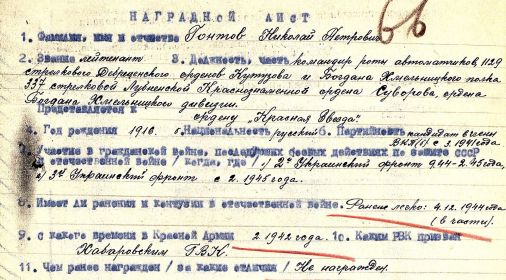 НАГРАДНОЙ ЛИСТ
1. Фамилия, имя и отчество Гонтов Николай Петрович
2. Звание лейтенант 3. Должность, часть командир роты автоматчиков 1129
стрелкового Дебреценского орденов Кутузова и Богдана Хмельницкого полка
337 стрелковой Лубненской Краснознаменной ордена Суворова, ордена
Богдана Хмельницкого дивизии.
Представляется к
ордену "Красная Звезда"
4. Год рождения 1910 г. Национальность русский 6. Партийность кандидат в члены
ВКП(б) с 3.1941 года
7. Участие в гражданской войне, последующих боевых действиях по защите СССР
и отечественной войне / когда, где / 1) 2й Украинский фронт 9.44-2.45 года,
2) 3й Украинский фронт с 2.1945 года.
8. Имеет ли ранения и контузии в отечественной войне. Ранен легко: 4.12.1944 года
(в части).
9. с какого времени в Красной Армии 2.1942 года. 10. Каким РВК призван
Хабаровским ГВК.
11. Чем ранее награжден / за какие отличия / Не награжден.